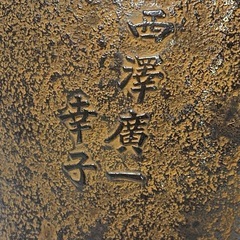 西澤廣一
幸子